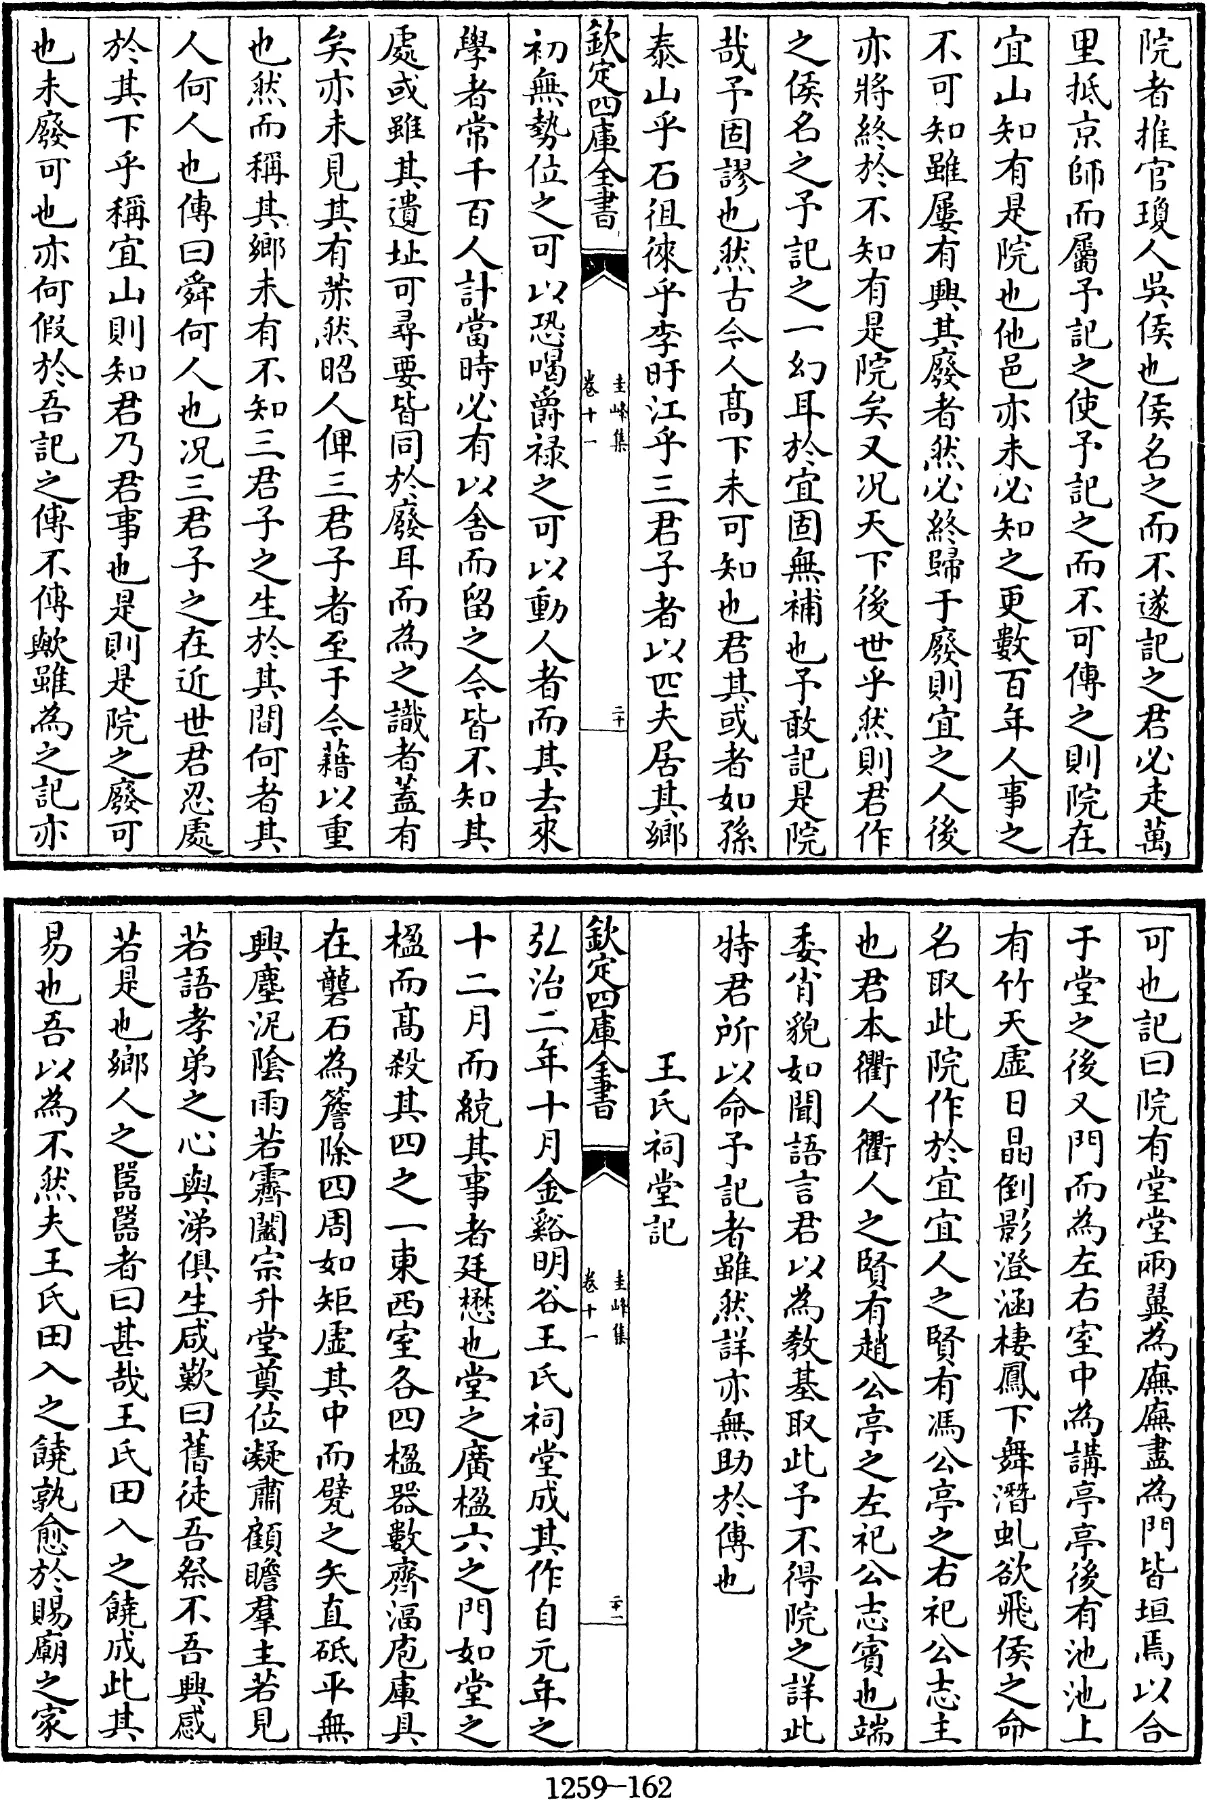 院者推官瓊人吳侯也侯名之而不遂記之君必走萬
里抵京師而屬予記之使予記之而不可傳之則院在
宜山知有是院也他邑亦未必知之更數百年人事之
不可知雖屢有興其廢者然必終歸于廢則宜之人後
亦將終於不知有是院矣又况天下後世乎然則君作
之侯名之予記之一幻耳於宜固無補也予敢記是院
哉予固謬也然古今人髙下未可知也君其或者如孫
泰山乎石徂徠乎李旴江乎三君子者以匹夫居其鄉
欽定四庫全書
圭峰集
卷十一
二十
初無勢位之可以恐喝爵禄之可以動人者而其去來
學者常千百人計當時必有以舍而留之今皆不知其
處或雖其遺址可尋要皆同於廢耳而為之識者蓋有
矣亦未見其有茶然昭人俾三君子者至于今藉以重
也然而稱其鄉未有不知三君子之生於其間何者其
人何人也傳曰舜何人也况三君子之在近世君忍處
於其下乎稱宜山則知君乃君事也是則是院之廢可
也未廢可也亦何假於吾記之傳不傳歟雖為之記亦
可也記曰院有堂堂兩翼為廡廡盡為門皆垣焉以合
于堂之後又門而為左右室中為講亭亭後有池池上
有竹天虛日晶倒影澄涵棲鳳下舞潛虬欲飛侯之命
名取此院作於宜宜人之賢有馮公亭之右祀公志主
也君本衢人衢人之賢有趙公亭之左祀公志賓也端
委肖貌如聞語言君以為教基取此予不得院之詳此
特君所以命予記者雖然詳亦無助於傳也
王氏祠堂記
欽定四庫全書
圭峰集
卷十一
二十一
弘治二年十月金谿明谷王氏祠堂成其作自元年之
十二月而綂其事者廷懋也堂之廣楹六之門如堂之
楹而髙殺其四之一東西室各四楹器數齊湢庖庫具
在礲石為簷除四周如矩虚其中而甓之矢直砥平無
興塵泥隂雨若霽闔宗升堂奠位凝肅顧瞻羣主若見
若語孝弟之心與涕俱生咸歎曰舊徒吾祭不吾興感
若是也鄉人之嚚嚚者曰甚哉王氏田入之饒成此其
易也吾以為不然夫王氏田入之饒孰愈於賜廟之家
1259—162